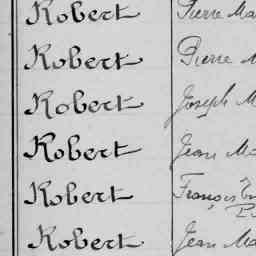 Robert Pierre Ma
Robert Pierre M
Robert Joseph M
Robert Jean Ma
Robert François
Robert Jean Ma